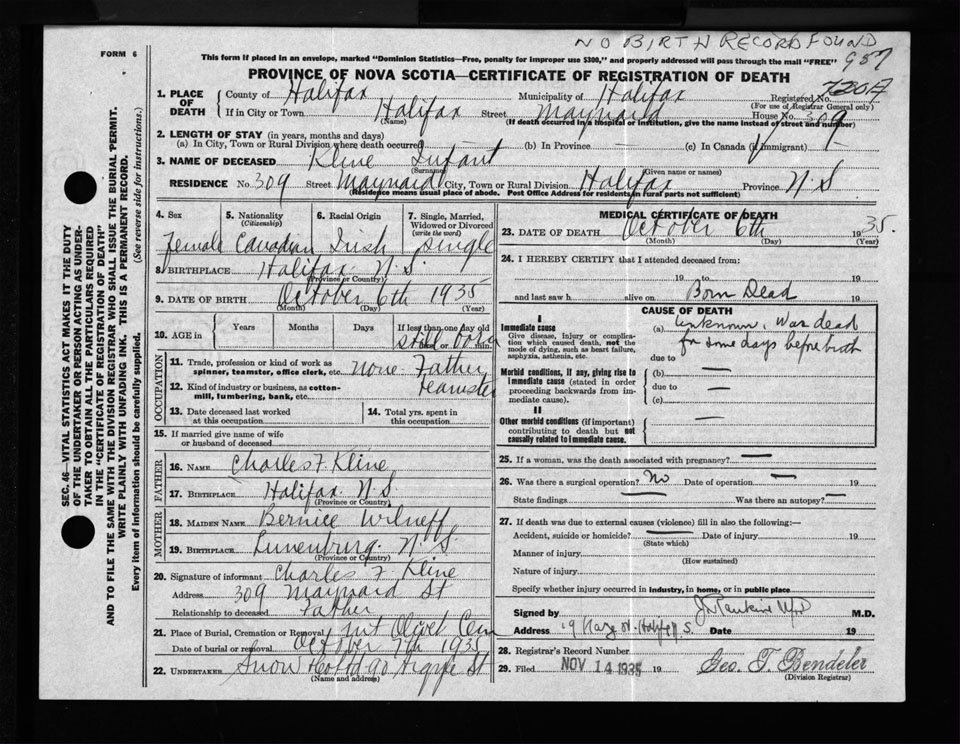 NO BIRTH RECORD FOUND
FORM 6
This form if placed in an envelope, marked "Dominion Statistics—Free, penalty for improper use $300," and properly addressed will pass through the mail "FREE"
957
PROVINCE OF NOVA SCOTIA—CERTIFICATE OF REGISTRATION OF DEATH
1. PLACE OF DEATH
County of Halifax Municipality of Halifax Registered No.
(For use of Registrar General only)
If in City or Town Halifax Street Maynard House No. 309
(Name) (If death occurred in a hospital or institution, give the name instead of street and number)
2. LENGTH OF STAY (in years, months and days)
(a) In City, Town or Rural Division where death occurred (b) In Province — (c) In Canada (if immigrant)
3. NAME OF DECEASED Kline Infant
(Surname) (Given name or names)
RESIDENCE No. 309 Street Maynard City, Town or Rural Division Halifax Province N.S
(Residence means usual place of abode. Post Office Address for residents in rural parts not sufficient)
4. Sex 5. Nationality (Citizenship) 6. Racial Origin 7. Single, Married, Widowed or Divorced (write the word)
Female Canadian Irish Single
8 BIRTHPLACE Halifax N.S.
(Province or Country)
9. DATE OF BIRTH October 6th 1935
(Month) (Day) (Year)
10. AGE in Years Months Days If less than one day old
hrs. or min.
OCCUPATION
11. Trade, profession or kind of work as spinner, teamster, office clerk, etc. none Father
12. Kind of industry or business, as cotton-mill, lumbering, bank, etc. teamster
13. Date deceased last worked at this occupation
14. Total yrs. spent in this occupation
15. If married give name of wife or husband of deceased
FATHER
16. NAME Charles F. Kline
17. BIRTHPLACE Halifax N.S.
(Province or Country)
MOTHER
18. MAIDEN NAME Bernice Wilneff
19. BIRTHPLACE Lunenburg N.S.
(Province or Country)
20. Signature of informant Charles F. Kline
Address 309 Maynard St
Relationship to deceased Father
21. Place of Burial, Cremation or Removal Mt Olivet Cem
Date of burial or removal October 7th 1935
22. UNDERTAKER Snow & Co Ltd 90 Argyle St
(Name and address)
MEDICAL CERTIFICATE OF DEATH
23. DATE OF DEATH October 6th 1935.
(Month) (Day) (Year)
24. I HEREBY CERTIFY that I attended deceased from:
19 to 19
and last saw h alive on Born Dead 19
CAUSE OF DEATH
I
Immediate cause
Give disease, injury or complication which caused death, not the mode of dying, such as heart failure, asphyxia, asthenia, etc.
(a) Unknown, Was dead for some days before birth
due to
Morbid conditions, if any, giving rise to immediate cause (stated in order proceeding backwards from immediate cause).
(b) —
due to —
(c)
II
Other morbid conditions (if important) contributing to death but not causally related to immediate cause.
25. If a woman, was the death associated with pregnancy? —
26. Was there a surgical operation? No Date of operation — 19
State findings — Was there an autopsy? —
27. If death was due to external causes (violence) fill in also the following:—
Accident, suicide or homicide? — Date of injury 19
(State which)
Manner of injury
(How sustained)
Nature of injury
Specify whether injury occurred in industry, in home, or in public place
Signed by J. Rankine M.D M.D.
Address Date 19
28. Registrar's Record Number
29. Filed NOV 14 1935 19 Geo. T. Bendeler
(Division Registrar)
SEC. 46—VITAL STATISTICS ACT MAKES IT THE DUTY
OF THE UNDERTAKER OR PERSON ACTING AS UNDER-
TAKER TO OBTAIN ALL THE PARTICULARS REQUIRED
IN THE "CERTIFICATE OF REGISTRATION OF DEATH"
AND TO FILE THE SAME WITH THE DIVISION REGISTRAR WHO SHALL ISSUE THE BURIAL PERMIT.
WRITE PLAINLY WITH UNFADING INK. THIS IS A PERMANENT RECORD.
Every item of information should be carefully supplied. (See reverse side for instructions.)